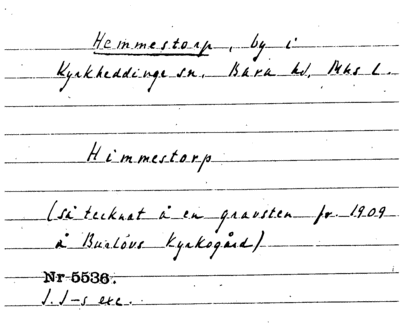 Hemmestorp, by i
Kyrkheddinge sn. Bara hd, Mhs l.
Himmestorp
(så tecknat å en gravsten fr. 1909
å Burlövs Kyrkogård)
Nr 5536.
J. J-s exc.